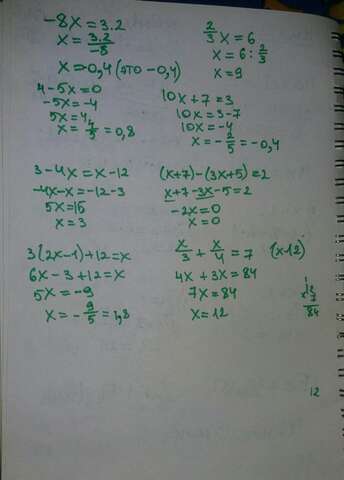 -8x = 3.2
x = 3.2/-8
x = 0,4 (это -0,4)
2/3 x = 6
x = 6 : 2/3
x = 9
4 - 5x = 0
-5x = -4
5x = 4
x = 4/5 = 0,8
10x + 7 = 3
10x = 3 - 7
10x = -4
x = - 2/5 = -0,4
3 - 4x = x - 12
-4x - x = -12 - 3
5x = 15
x = 3
(x+7) - (3x+5) = 2
x + 7 - 3x - 5 = 2
-2x = 0
x = 0
3(2x-1) + 12 = x
6x - 3 + 12 = x
5x = -9
x = - 9/5 = 1,8
x/3 + x/4 = 7 (x·12)
4x + 3x = 84
7x = 84
x = 12
12
x 7
84
12